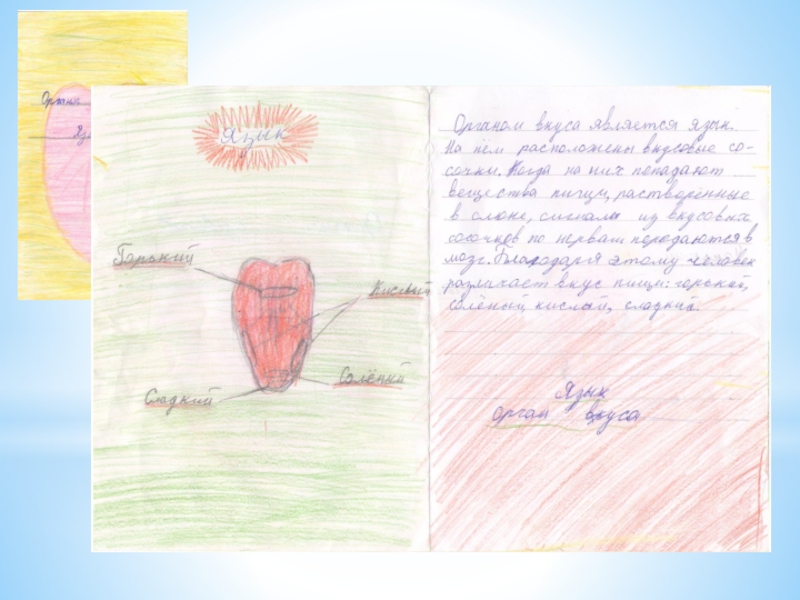 Органы
Язы
Язык
Горький
Кислый
Солёный
Сладкий
Органом вкуса является язык.
На нём расположены вкусовые со-
сочки. Когда на них попадают
вещества пищи, растворённые
в слюне, сигналы из вкусовых
сосочков по нервам передаются в
мозг. Благодаря этому человек
различает вкус пищи: горький,
солёный, кислый, сладкий.
Язык
орган вкуса